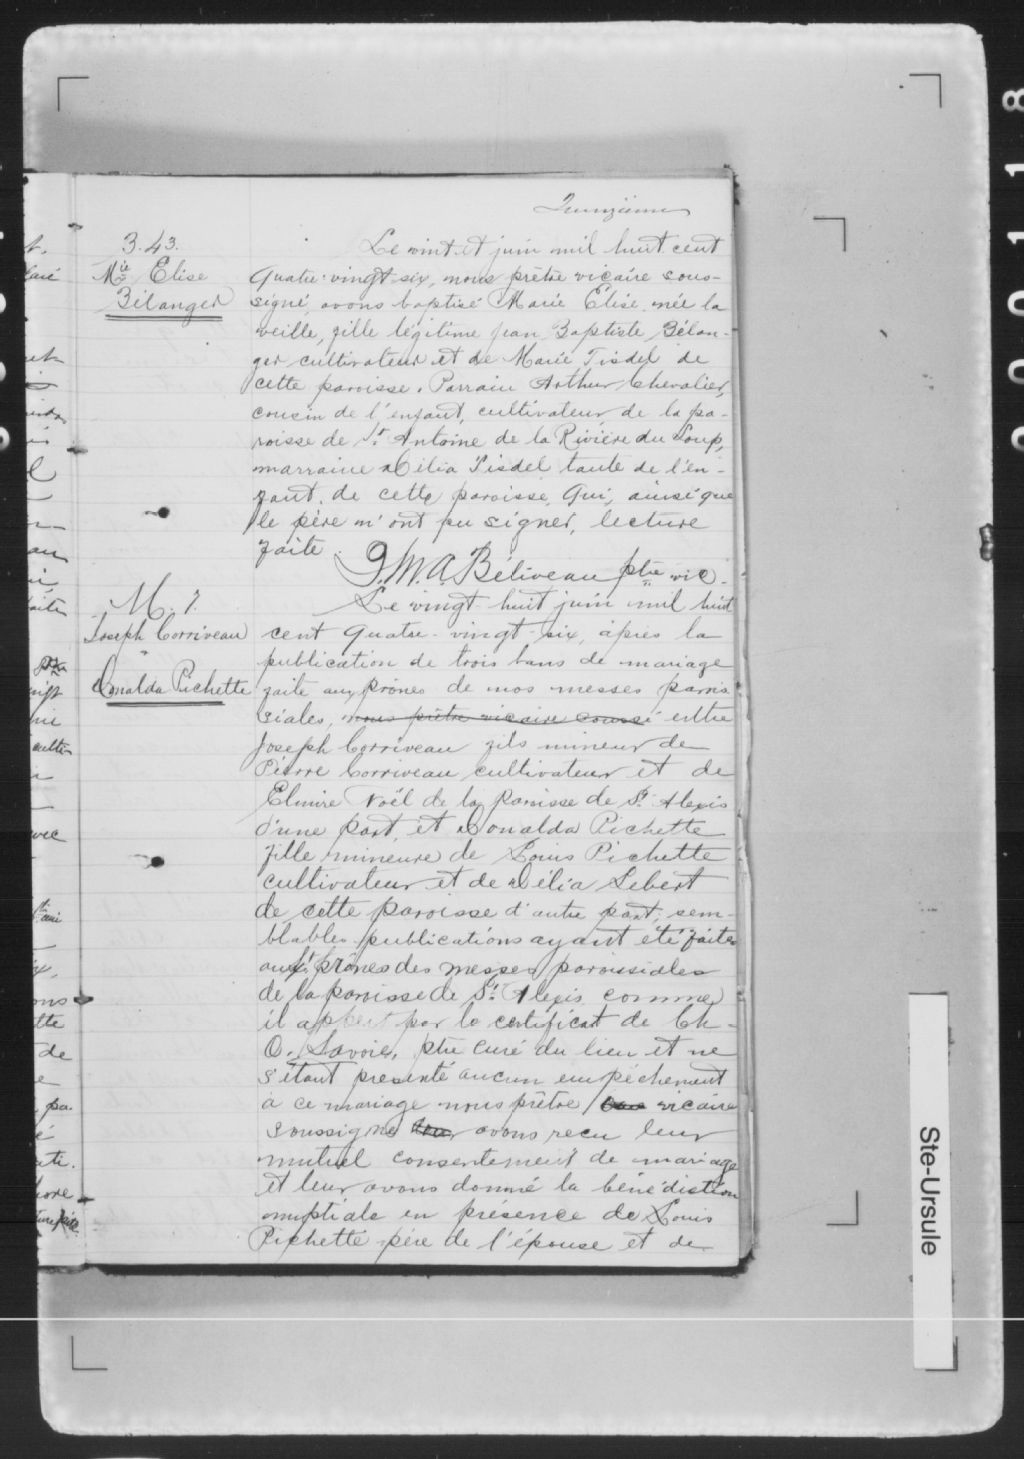 Quinzième
B. 43.
Mie Elise
Bélanger
Le vint et juin mil huit cent
quatre-vingt-six, nous prêtre vicaire sous-
signé, avons baptisé Marie Elise née la
veille, fille légitime Jean Baptiste Bélan-
ger cultivateur et de Marie Tisdel de
cette paroisse. Parrain Arthur Chevalier,
cousin de l'enfant, cultivateur de la pa-
roisse de St Antoine de la Rivière du Loup,
marraine Délia Tisdel tante de l'en-
fant, de cette paroisse, qui, ainsi que
le père n'ont pu signer, lecture
faite.
J. M. A. Béliveau ptre vic.
M. 7.
Joseph Corriveau
"
Donalda Pichette
Le vingt-huit juin mil huit
cent quatre-vingt-six, après la
publication de trois bans de mariage
faite aux prônes de nos messes parois
siales, nous prêtre vicaire soussi entre
Joseph Corriveau fils mineur de
Pierre Corriveau cultivateur et de
Elmire Noël de la paroisse de St. Alexis
d'une part, et Donalda Pichette
fille mineure de Louis Pichette
cultivateur et de Délia Lebert
de cette paroisse d'autre part, sem-
blables publications ayant été faites
aux prônes des messes paroissiales
de la paroisse de St. Alexis comme
il appert par le certificat de Ch-
O. Savoie, ptre curé du lieu et ne
s'étant presenté aucun empêchement
à ce mariage nous prêtre vicaire
soussigné avons recu leur
mutuel consentement de mariage
et leur avons donné la bénédiction
nuptiale en présence de Louis
Pichette père de l'épouse et de
Ste-Ursule